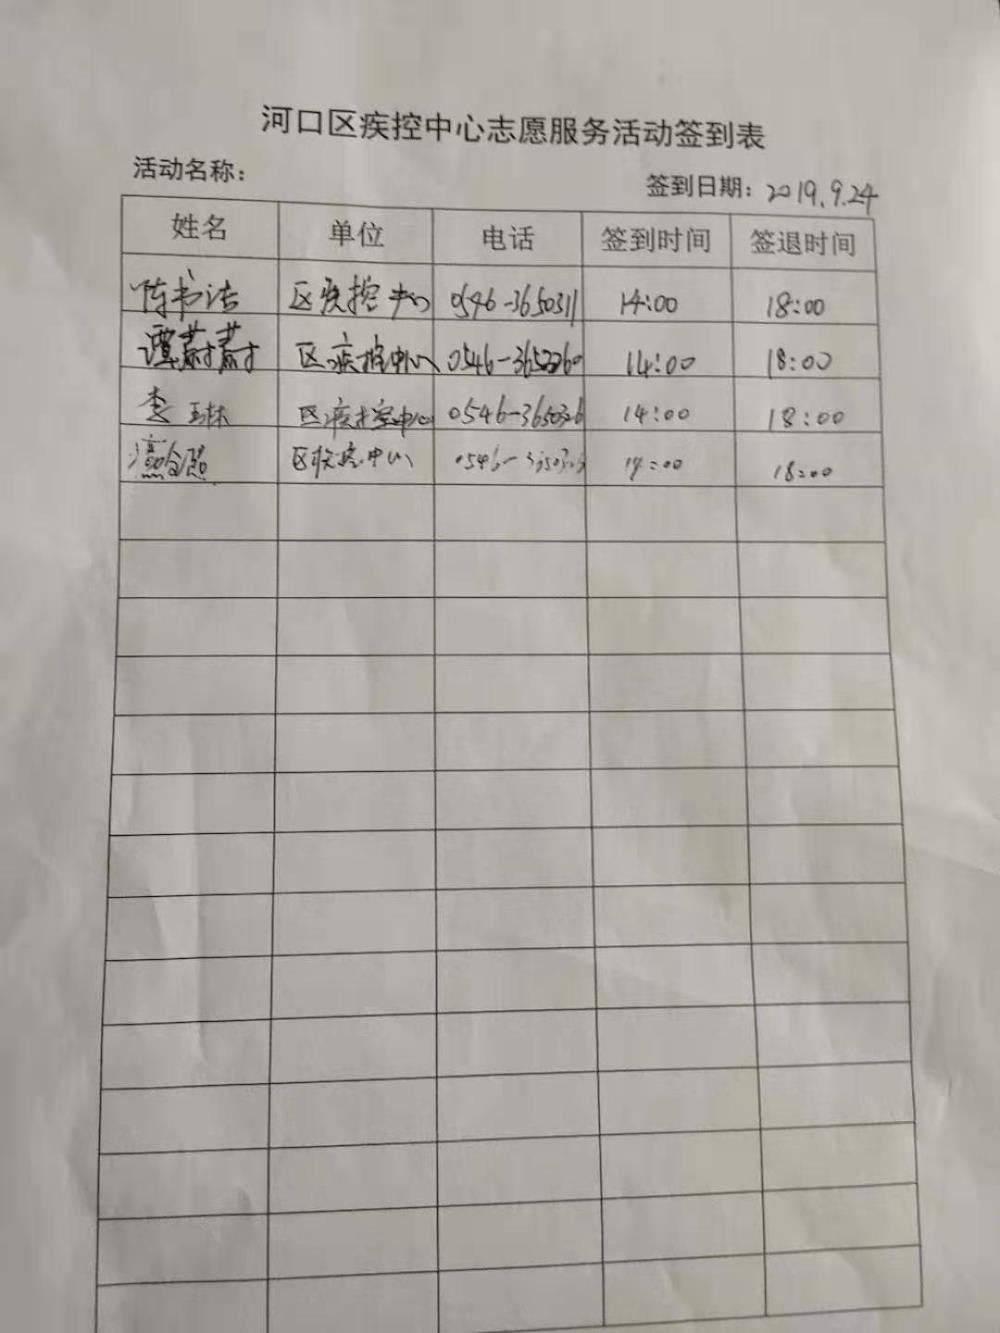 河口区疾控中心志愿服务活动签到表
活动名称： 签到日期：2019.9.24
姓名 单位 电话 签到时间 签退时间
陈书洁 区疾控中心 0546-3650311 14:00 18:00
谭蔚蔚 区疾控中心 14:00 18:00
李琳 区疾控中心 14:00 18:00
区疾控中心 14:00 18:00